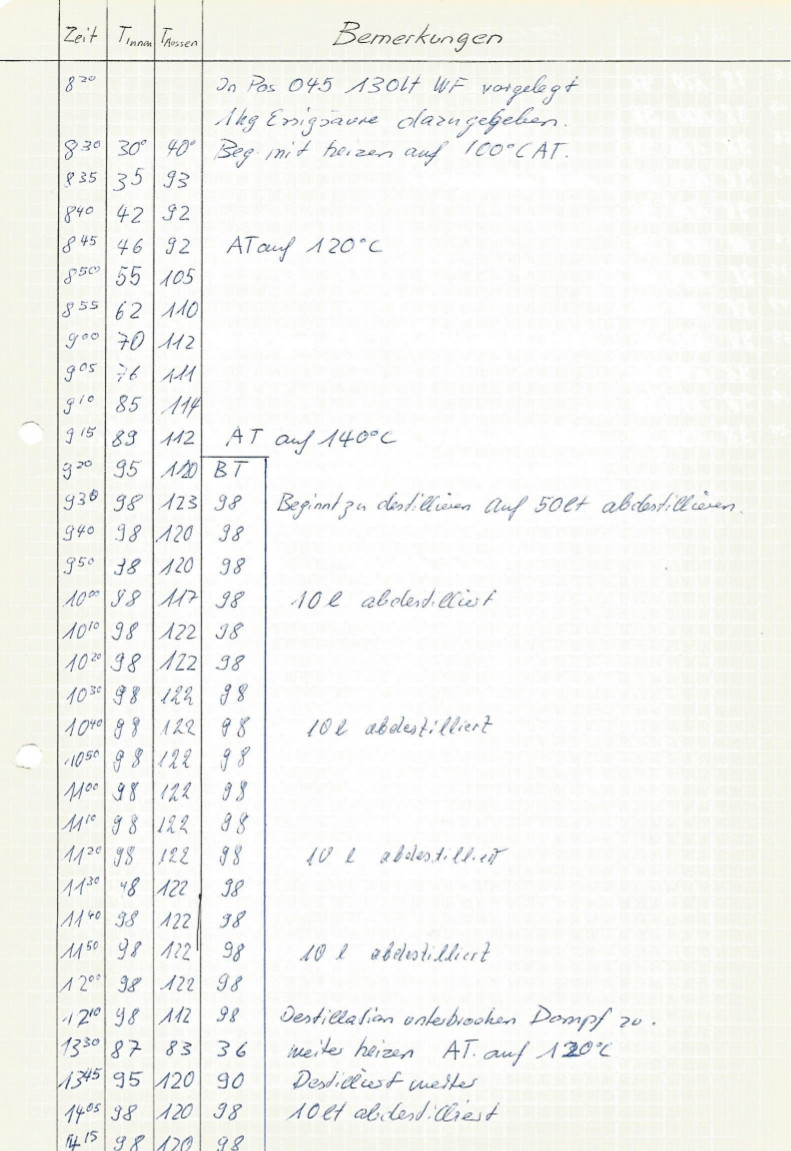 Zeit T Innen T Aussen Bemerkungen
8 20 In Pos 045 130lt WF vorgelegt
1kg Essigsäure dazugegeben.
8 30 30° 40° Beg. mit heizen auf 100°C AT.
8 35 35 93
8 40 42 92
8 45 46 92 AT auf 120°C
8 50 55 105
8 55 62 110
9 00 70 112
9 05 76 111
9 10 85 114
9 15 89 112 AT auf 140°C
9 20 95 120 BT
9 30 98 123 98 Beginnt zu destillieren Auf 50lt abdestillieren.
9 40 98 120 98
9 50 98 120 98
10 00 98 117 98 10 l abdestilliert
10 10 98 122 98
10 20 98 122 98
10 30 98 122 98
10 40 98 122 98 10 l abdestilliert
10 50 98 122 98
11 00 98 122 98
11 10 98 122 98
11 20 98 122 98 10 l abdestilliert
11 30 98 122 98
11 40 98 122 98
11 50 98 122 98 10 l abdestilliert
12 00 98 122 98
12 10 98 112 98 Destillation unterbrochen Dampf zu.
13 30 87 83 36 weiter heizen AT. auf 120°C
13 45 95 120 90 Destilliert weiter
14 05 98 120 98 10 lt abdestilliert
14 15 98 120 98